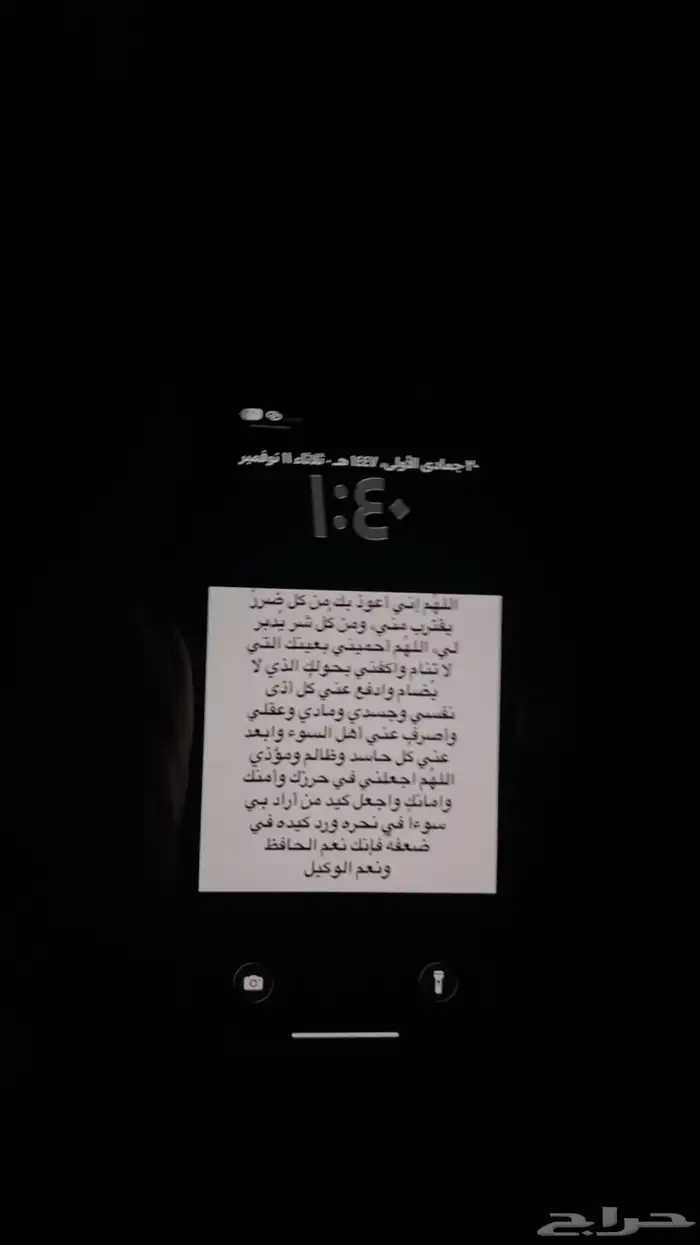 ٢٠ جمادى الأولى، ١٤٤٧ هـ - ثلاثاء ١١ نوفمبر
١:٤٠
اللهم إني أعوذ بك من كل ضرر
يقترب مني، ومن كل شر يُدبر
لي، اللهُم احميني بعينك التي
لا تنام واكفني بحولك الذي لا
يُضام وادفع عني كُل أذى
نفسي وجسدي ومادي وعقلي
وأصرف عني أهل السوء وابعد
عني كل حاسد وظالم ومؤذي
اللهُم اجعلني في حرزك وأمنك
وامانك واجعل كيد من أراد بي
سوءاً في نحره ورد كيده في
ضعفه فإنك نعم الحافظ
ونعم الوكيل
حراج